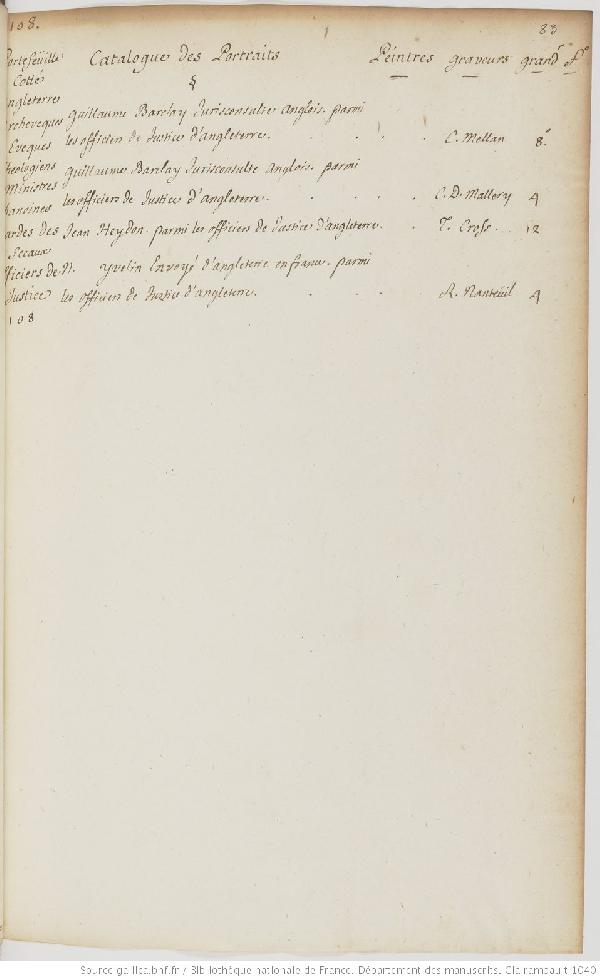 108.
83
Portefeuille Catalogue des Portraits Peintres graveurs grandr fo
Cotté §
ngleterre
rcheveques Guillaume Barclay Jurisconsulte anglois. parmi
Eveques les officiers de Justice d'angleterre. C. Mellan 8o
heologiens Guillaume Barclay Jurisconsulte Anglois. parmi
Ministres
hanoines les officiers de Justice d'angleterre. C. D. Mallery 4
ardes des Jean Heydon. parmi les officiers de Justice d'angleterre. T. Cross. 12
Sceaux
fficiers de N. yvelin Envoyé d'angleterre en france. parmi
Justice les officiers de Justice d'angleterre. R. Nanteüil 4
108
Source gallica.bnf.fr / Bibliothèque nationale de France. Département des manuscrits. Clairambault 1040